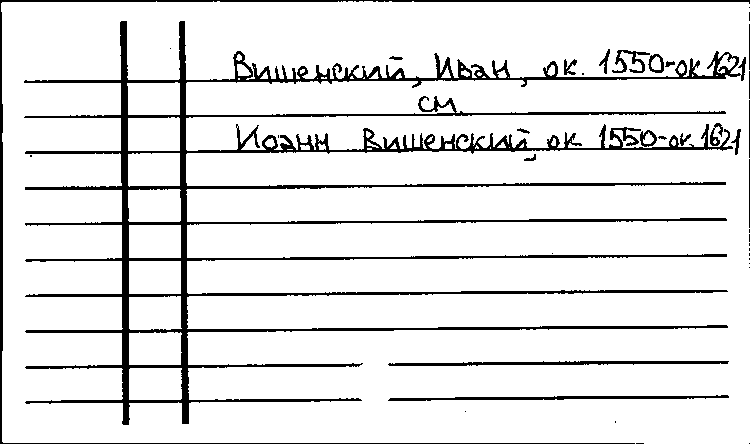 Вишенский, Иван, ок. 1550-ок.1621
см.
Иоанн Вишенский, ок. 1550-ок.1621